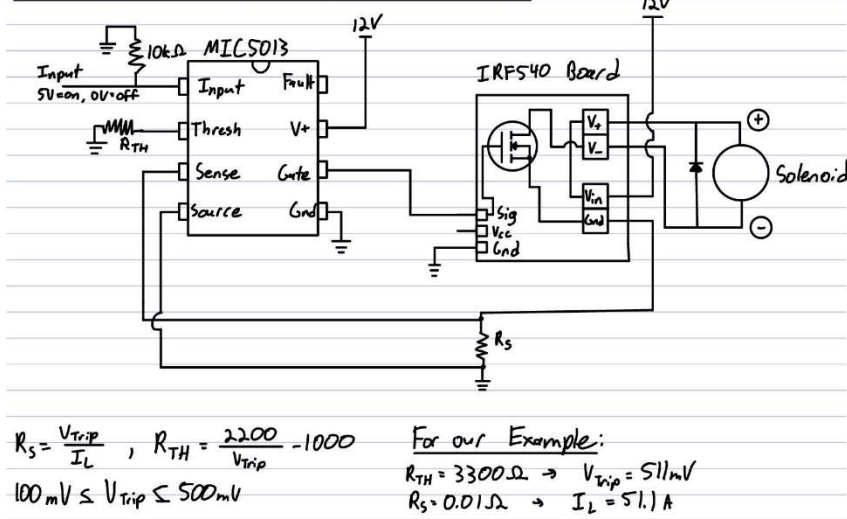 12V
12V
10kΩ
MIC5013
Input
5V=on, 0V=off
Input
Fault
Thresh
V+
RTH
Sense
Gate
Source
Gnd
IRF540 Board
V+
V-
Vin
Gnd
Sig
Vcc
Gnd
+
Solenoid
-
Rs
Rs = VTrip / IL , RTH = 2200 / VTrip - 1000
100mV ≤ VTrip ≤ 500mV
For our Example:
RTH = 3300Ω → VTrip = 511mV
Rs = 0.01Ω → IL = 51.1 A